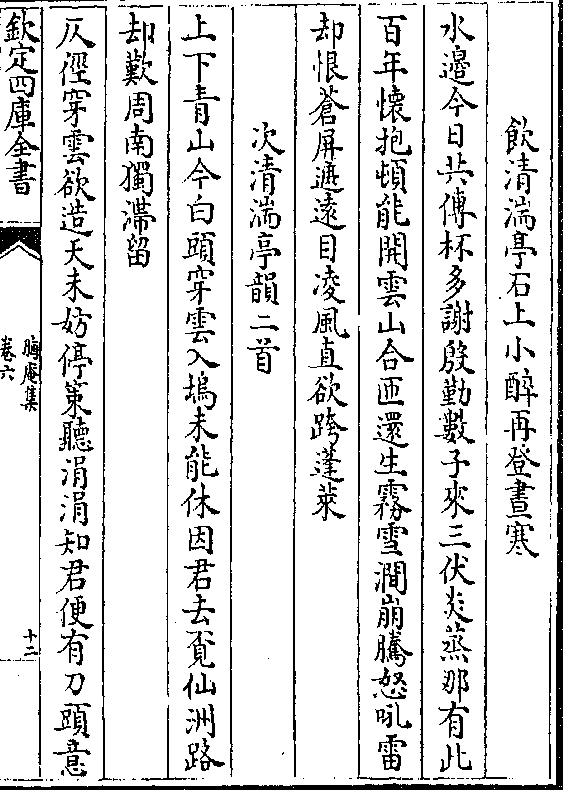 飲清湍亭石上小醉再登晝寒
水邉今日共傳杯多謝殷勤數子來三伏炎蒸那有此
百年懷抱頓能開雲山合匝還生霧雪澗崩騰怒吼雷
却恨蒼屏遮遠目凌風直欲跨蓬萊
次清湍亭韻二首
上下青山今白頭穿雲入塢未能休因君去覔仙洲路
却歎周南獨滯留
仄徑穿雲欲造天未妨停策聽涓涓知君便有刀頭意
欽定四庫全書
晦庵集
卷六
十二